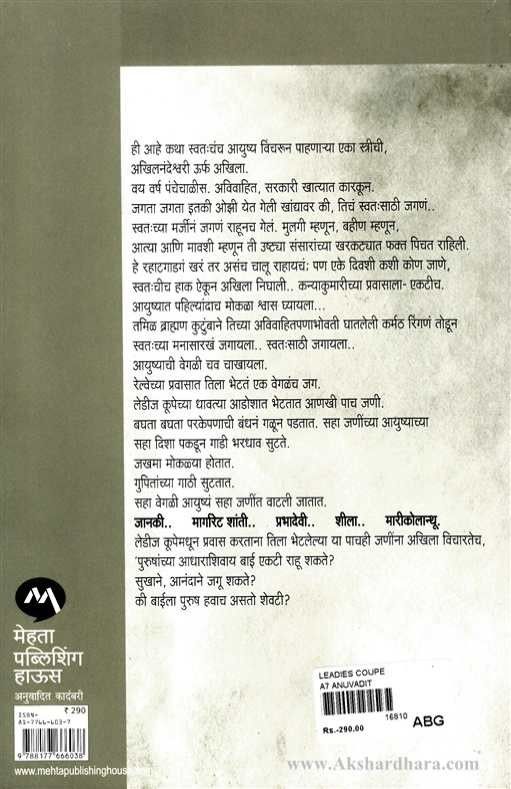 ही आहे कथा स्वतःचंच आयुष्य विंचरून पाहणाऱ्या एका स्त्रीची,
अखिलनंदेश्वरी ऊर्फ अखिला.
वय वर्ष पंचेचाळीस. अविवाहित, सरकारी खात्यात कारकून.
जगता जगता इतकी ओझी येत गेली खांद्यावर की, तिचं स्वतःसाठी जगणं..
स्वतःच्या मर्जीनं जगणं राहूनच गेलं. मुलगी म्हणून, बहीण म्हणून,
आत्या आणि मावशी म्हणून ती उष्ट्या संसारांच्या खरकट्यात फक्त पिचत राहिली.
हे रहाटगाडगं खरं तर असंच चालू राहायचं; पण एके दिवशी कशी कोण जाणे,
स्वतःचीच हाक ऐकून अखिला निघाली.. कन्याकुमारीच्या प्रवासाला- एकटीच.
आयुष्यात पहिल्यांदाच मोकळा श्वास घ्यायला...
तमिळ ब्राह्मण कुटुंबाने तिच्या अविवाहितपणाभोवती घातलेली कर्मठ रिंगणं तोडून
स्वतःच्या मनासारखं जगायला.. स्वतःसाठी जगायला...
आयुष्याची वेगळी चव चाखायला.
रेल्वेच्या प्रवासात तिला भेटतं एक वेगळंच जग.
लेडीज कूपेच्या धावत्या आडोशात भेटतात आणखी पाच जणी.
बघता बघता परकेपणाची बंधनं गळून पडतात. सहा जणींच्या आयुष्याच्या
सहा दिशा पकडून गाडी भरधाव सुटते.
जखमा मोकळ्या होतात.
गुपितांच्या गाठी सुटतात.
सहा वेगळी आयुष्यं सहा जणींत वाटली जातात.
जानकी.. मार्गारेट शांती.. प्रभादेवी.. शीला.. मारीकोलान्थू.
लेडीज कूपेमधून प्रवास करताना तिला भेटलेल्या या पाचही जणींना अखिला विचारतेच,
'पुरुषांच्या आधाराशिवाय बाई एकटी राहू शकते?
सुखाने, आनंदाने जगू शकते?
की बाईला पुरुष हवाच असतो शेवटी?
मेहता
पब्लिशिंग
हाऊस
अनुवादित कादंबरी
₹ 290
ISBN-
A5-7766-603-7
9 788177 666038
www.mehtapublishinghouse.com
LEADIES COUPE
A7 ANUVADIT
16810
Rs.-290.00
ABG
www.Akshardhara.com